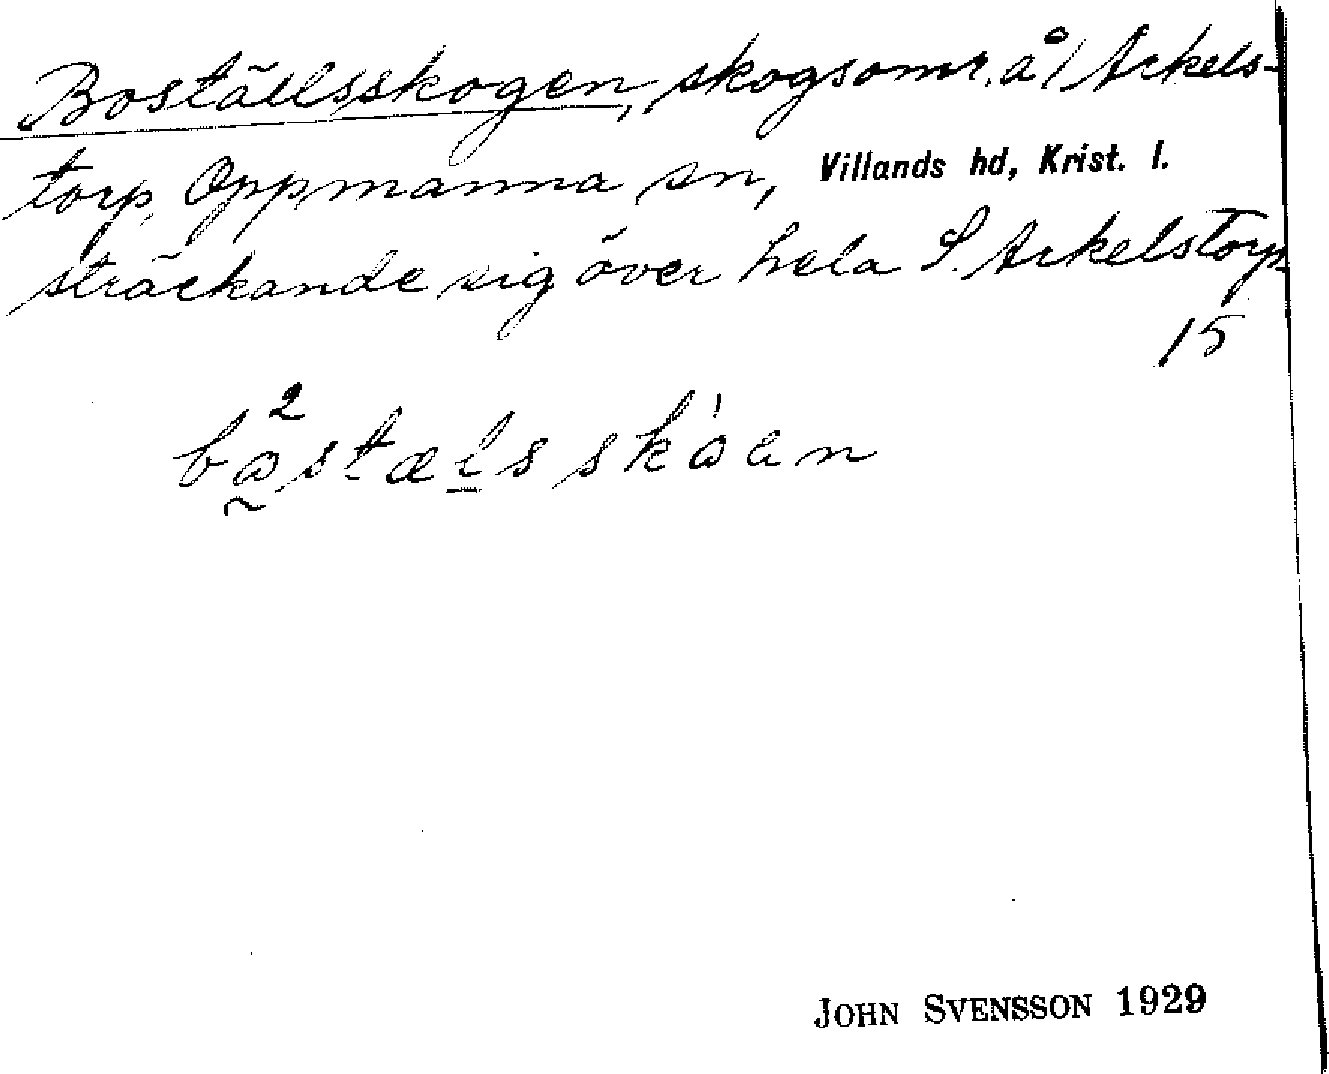 Boställsskogen, skogsomr. å Arkels-
torp, Oppmanna sn, Villands hd, Krist. l.
sträckande sig över hela S. Arkelstorp.
15
JOHN SVENSSON 1929